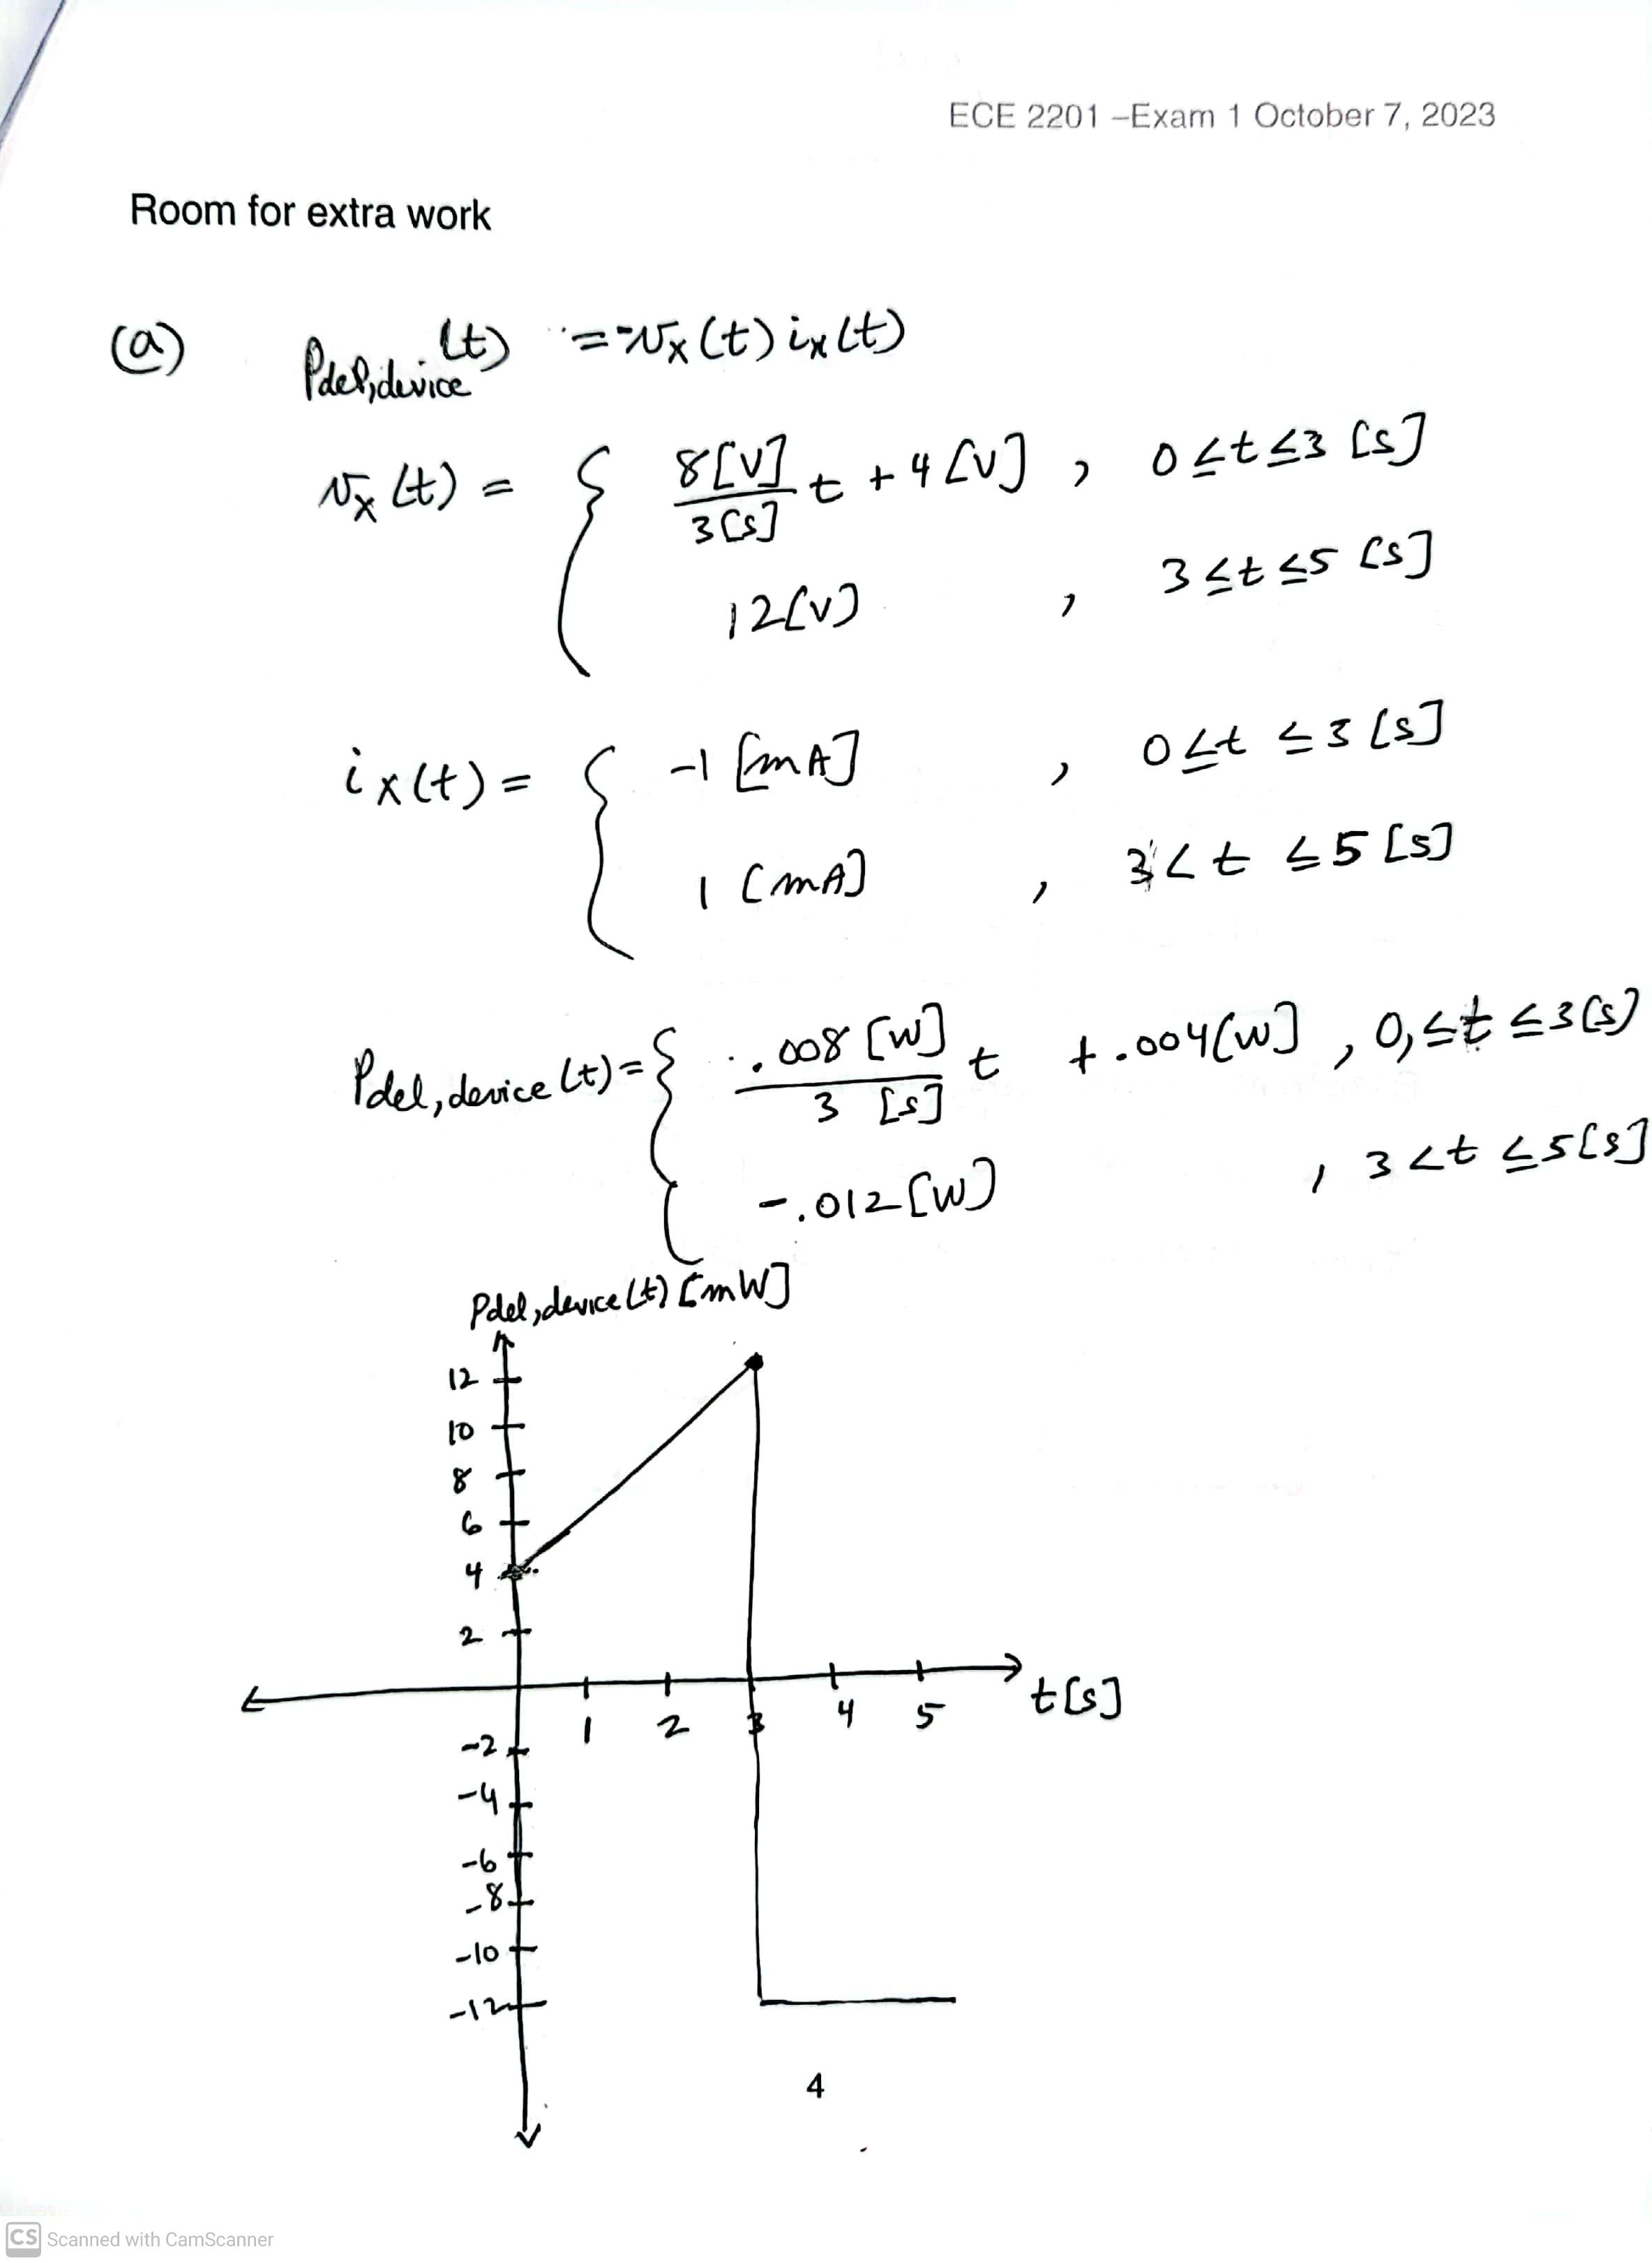 ECE 2201 –Exam 1 October 7, 2023
Room for extra work
(a) Pdel,device(t) = -vx(t) ix(t)
vx(t) = { 8[V]/3[s] t + 4[V] , 0 ≤ t ≤ 3 [s]
12[V] , 3 ≤ t ≤ 5 [s]
ix(t) = { -1 [mA] , 0 ≤ t ≤ 3 [s]
1 [mA] , 3 < t ≤ 5 [s]
Pdel,device(t) = { .008 [W]/3 [s] t + .004[W] , 0 ≤ t ≤ 3[s]
-.012[W] , 3 < t ≤ 5[s]
Pdel,device(t) [mW]
12
10
8
6
4
2
1 2 3 4 5 t[s]
-2
-4
-6
-8
-10
-12
4
CS Scanned with CamScanner